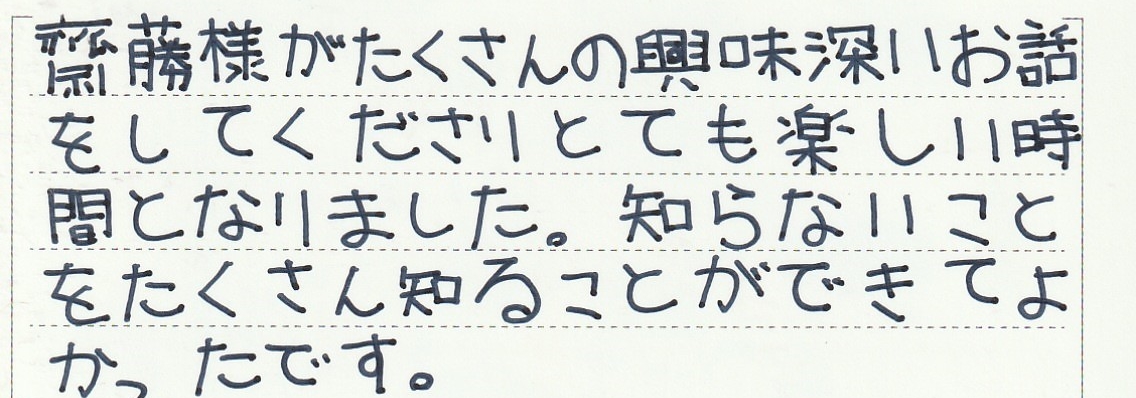 齋藤様がたくさんの興味深いお話
をしてくださりとても楽しい時
間となりました。知らないこと
をたくさん知ることができてよ
かったです。